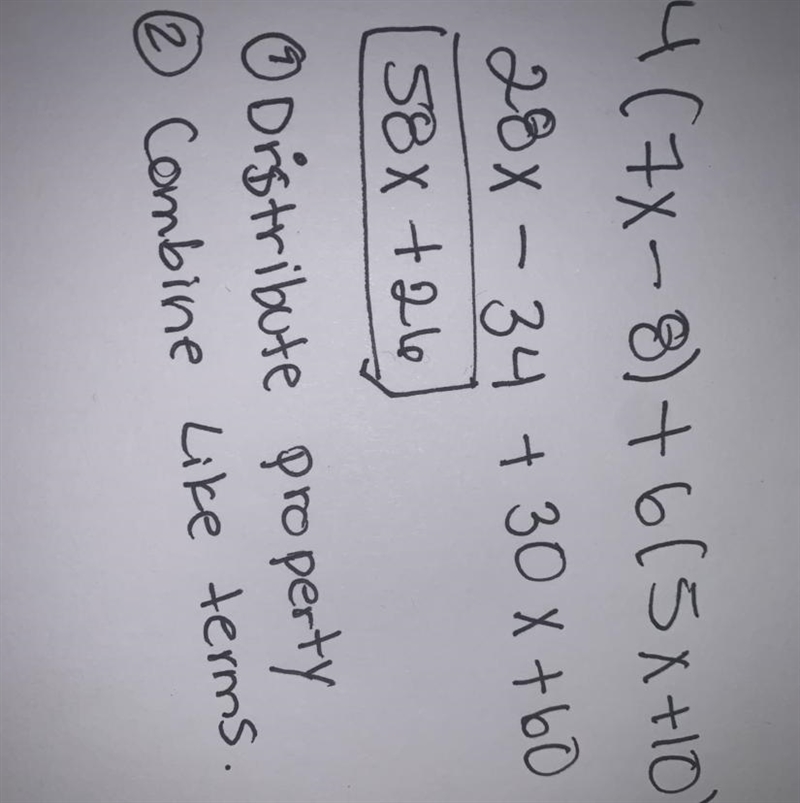 4(7x-8)+6(5x+10)
28x - 34 + 30x+60
58x +26
① Distribute property
② Combine Like terms.